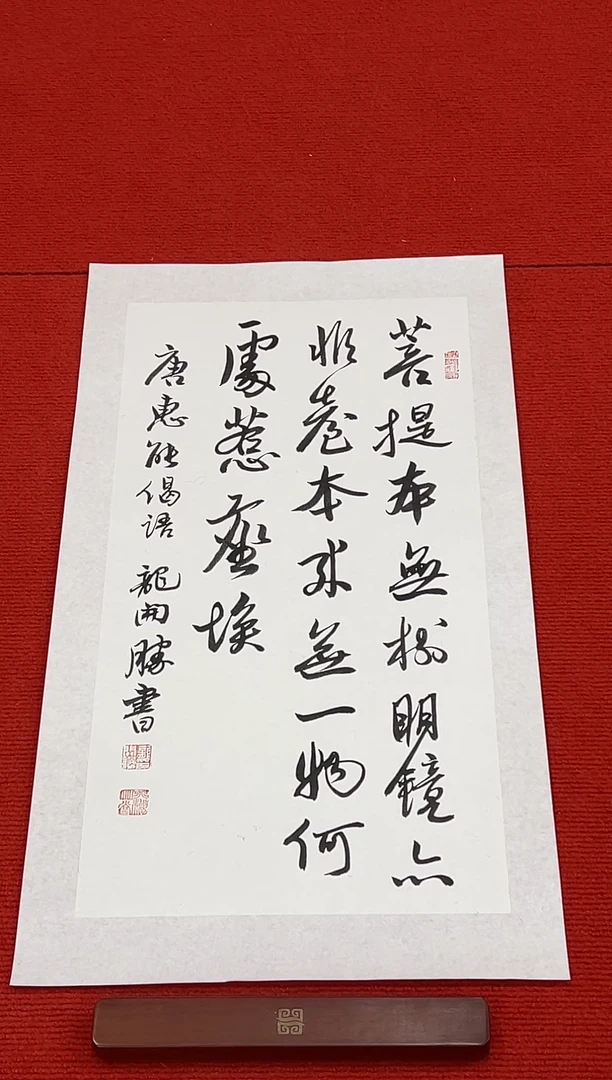 菩提本無樹明鏡亦
非臺本來無一物何
處惹塵埃
唐惠能偈語 龍開勝書